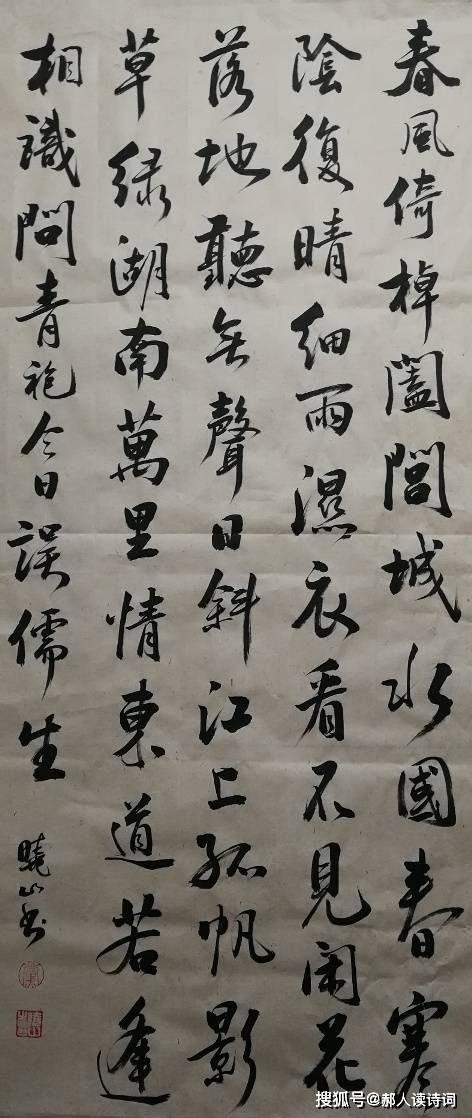 春風倚棹闔閭城水國春寒
陰復晴細雨濕衣看不見閑花
落地聽無聲日斜江上孤帆影
草綠湖南萬里情東道若逢
相識問青袍今日誤儒生
曉山書
搜狐号@郝人读诗词